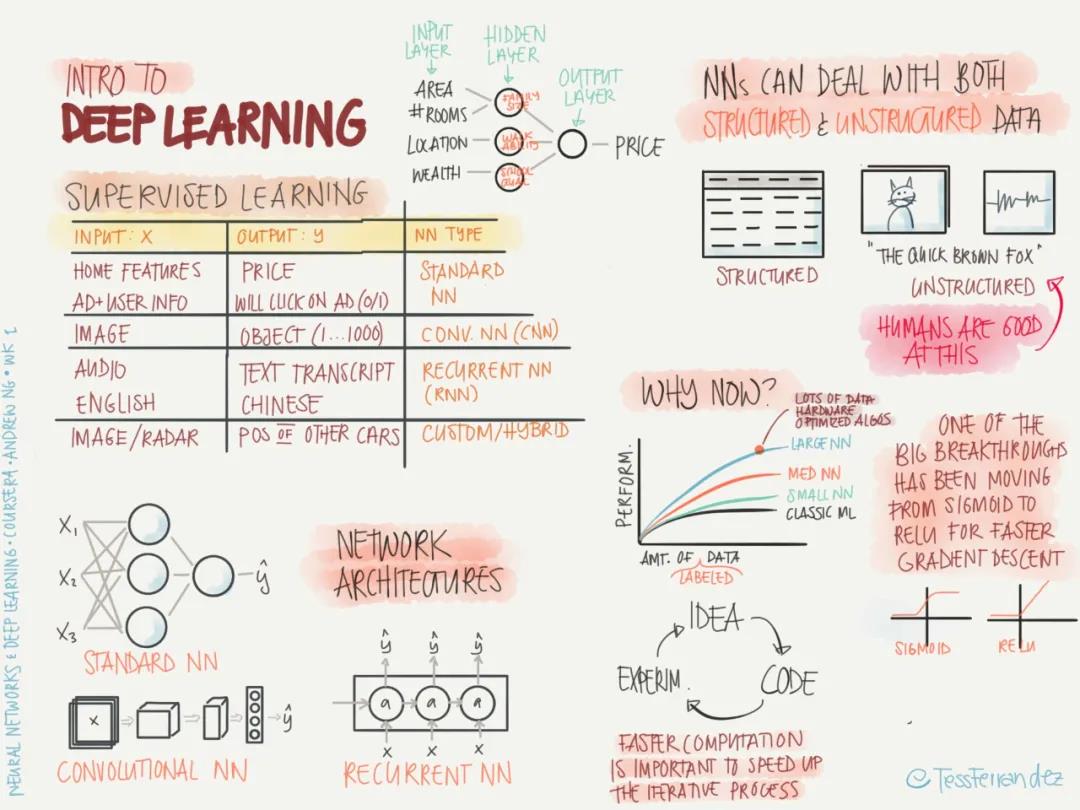 INTRO TO
DEEP LEARNING
INPUT LAYER
HIDDEN LAYER
OUTPUT LAYER
AREA
#ROOMS
LOCATION
WEALTH
FAMILY SIZE
WALK ABILITY
SCHOOL QUAL
PRICE
SUPERVISED LEARNING
INPUT: X OUTPUT: y NN TYPE
HOME FEATURES PRICE STANDARD
AD+USER INFO WILL CLICK ON AD (0/1) NN
IMAGE OBJECT (1...1000) CONV. NN (CNN)
AUDIO TEXT TRANSCRIPT RECURRENT NN
ENGLISH CHINESE (RNN)
IMAGE/RADAR POS OF OTHER CARS CUSTOM/HYBRID
NNs CAN DEAL WITH BOTH
STRUCTURED & UNSTRUCTURED DATA
STRUCTURED
"THE QUICK BROWN FOX"
UNSTRUCTURED
HUMANS ARE GOOD
AT THIS
WHY NOW?
LOTS OF DATA
HARDWARE
OPTIMIZED ALGOS
LARGE NN
MED NN
SMALL NN
CLASSIC ML
PERFORM.
AMT. OF DATA
LABELED
ONE OF THE
BIG BREAKTHROUGHS
HAS BEEN MOVING
FROM SIGMOID TO
RELU FOR FASTER
GRADIENT DESCENT
SIGMOID
RELU
IDEA
CODE
EXPERIM.
FASTER COMPUTATION
IS IMPORTANT TO SPEED UP
THE ITERATIVE PROCESS
NETWORK
ARCHITECTURES
X1
X2
X3
ŷ
STANDARD NN
X
ŷ
CONVOLUTIONAL NN
ŷ ŷ ŷ
a a a
X X X
RECURRENT NN
NEURAL NETWORKS & DEEP LEARNING • COURSERA • ANDREW NG • WK 1
@TessFerrandez